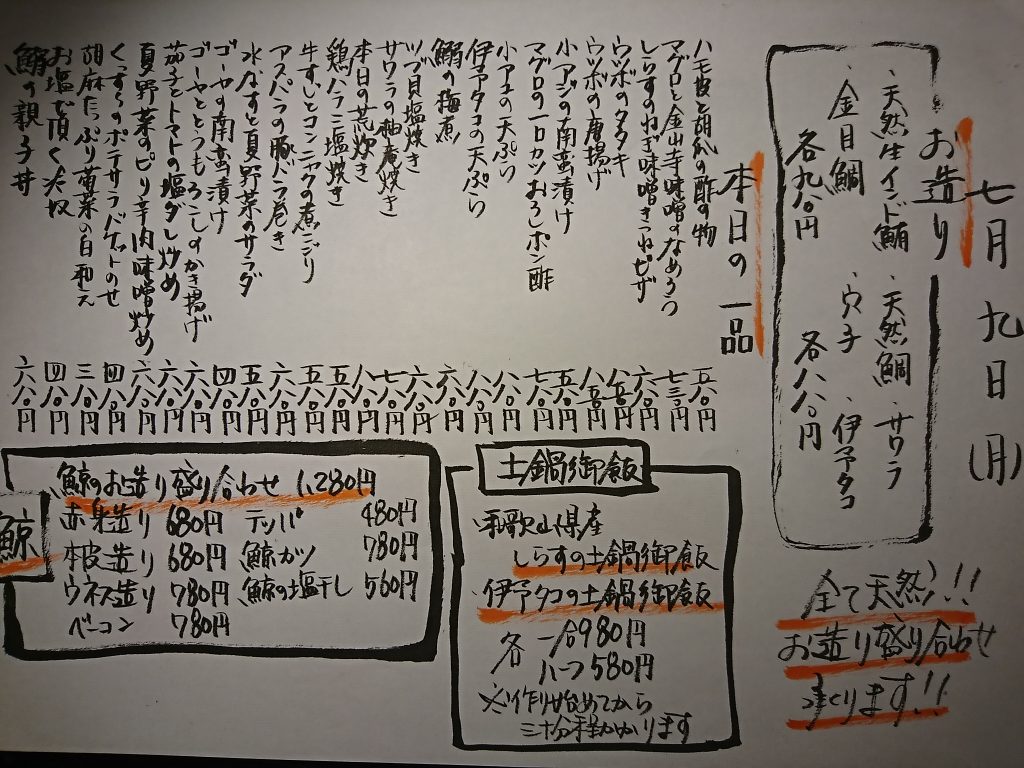 七月九日(月)
お造り
・天然生インド鮪 ・天然鯛 ・サワラ
・金目鯛 ・穴子 ・伊予タコ
各九八〇円 各八八〇円
本日の一品
ハモ皮と胡瓜の酢の物 五八〇円
マグロと金山寺味噌のなめろう 七三〇円
しらすのねぎ味噌きつねピザ 六八〇円
ウツボのタタキ 八五〇円
ウツボの唐揚げ 八五〇円
小アジの南蛮漬け 五八〇円
マグロの一口カツおろしポン酢 七八〇円
小アユの天ぷら 八八〇円
伊予タコの天ぷら 八八〇円
鰯の梅煮 六八〇円
ツブ貝塩焼き 六八〇円
サワラの柚庵焼き 七八〇円
本日の荒炊き 八八〇円
鶏バラミ塩焼き 五八〇円
牛すじとコンニャクの煮こごり 五八〇円
アスパラの豚バラ巻き 六八〇円
水なすと夏野菜のサラダ 五八〇円
ゴーヤの南蛮漬け 四八〇円
ゴーヤととうもろこしのかき揚げ 六八〇円
茄子とトマトの塩ダレ炒め 六八〇円
夏野菜のピリ辛肉味噌炒め 六八〇円
くずし のポテサラバゲットのせ 四八〇円
胡麻たっぷり菊菜の白和え 三八〇円
お塩で頂く冷奴 四八〇円
鰯の親子丼 六八〇円
土鍋御飯
・和歌山県産
しらすの土鍋御飯
・伊予タコの土鍋御飯
各 一合980円
ハーフ580円
※作り始めてから
三十分程かかります
鯨
鯨のお造り盛り合わせ 1,280円
赤身造り 680円 テッパ 480円
本皮造り 680円 鯨カツ 780円
ウネス造り 780円 鯨の塩干し 560円
ベーコン 780円
全て天然!!
お造り盛り合わせ
承ります!!